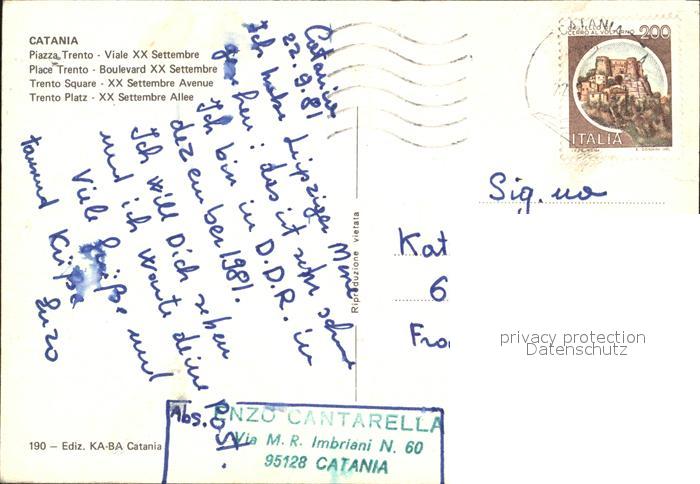 CATANIA
Piazza Trento - Viale XX Settembre
Place Trento - Boulevard XX Settembre
Trento Square - XX Settembre Avenue
Trento Platz - XX Settembre Allee
Catania
22.9.81
Ich habe Leipziger Messe
gesehen; das ist sehr schön
Ich bin in D.D.R. in
dezember 1981.
Ich will Dich sehen
und ich warte deine Post.
Viele Grüße und
tausend Küße
Enzo
190 - Ediz. KA-BA Catania
Riproduzione vietata
Abs. ENZO CANTARELLA
Via M. R. Imbriani N. 60
95128 CATANIA
CATANIA
CASTELLO DI
CERRO AL VOLTURNO 200
ITALIA
Sig.na
Kat
6
Fra
privacy protection
Datenschutz